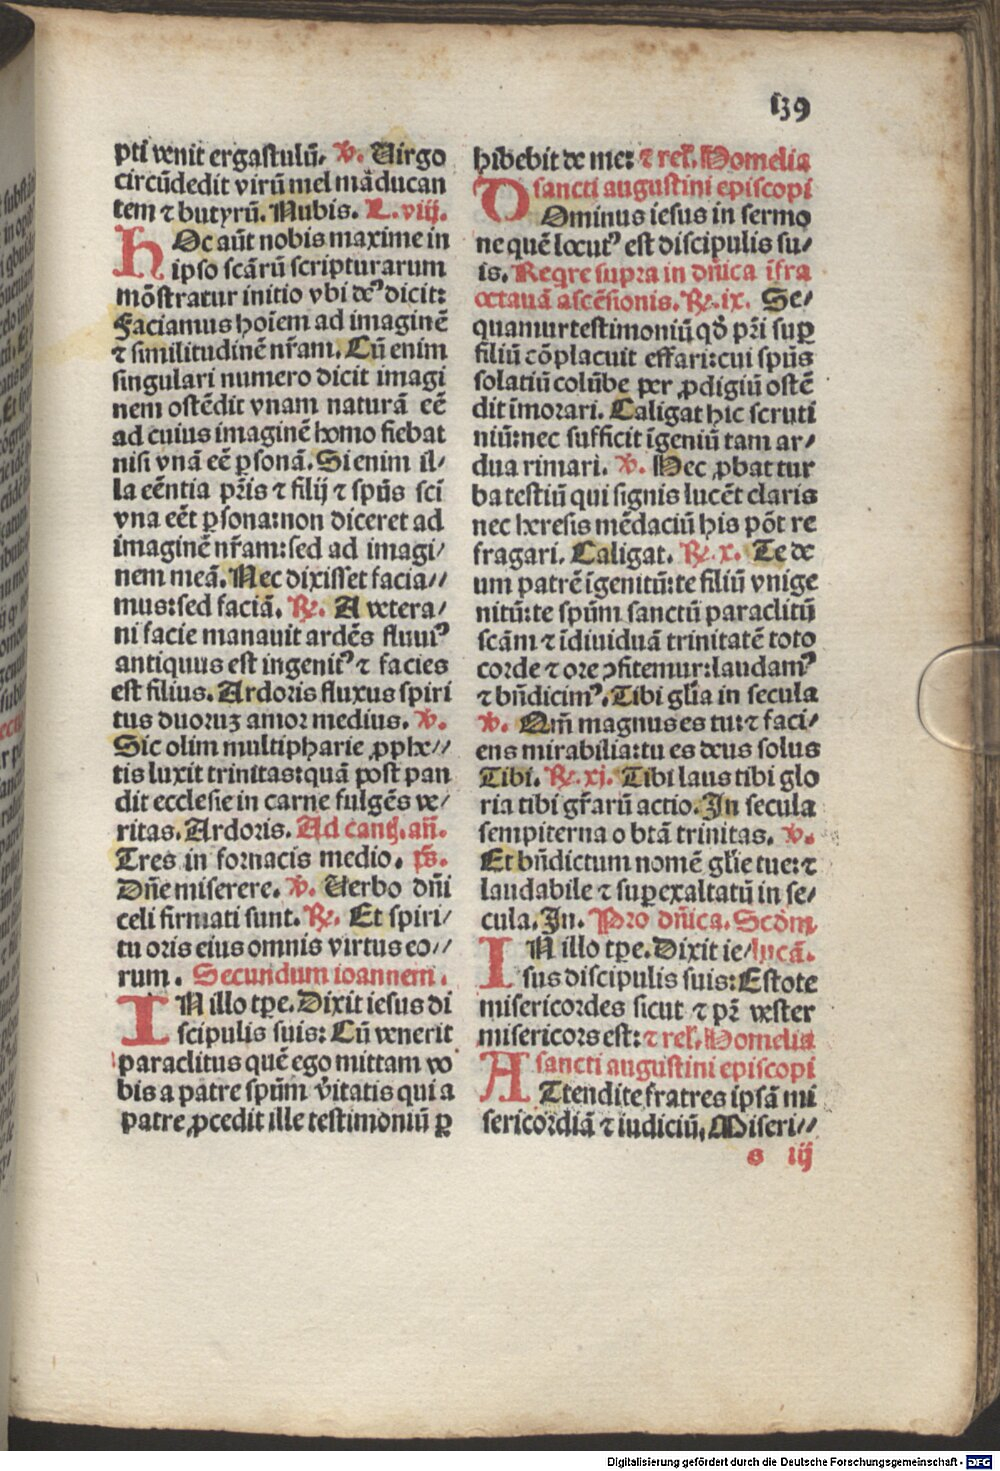 139
pti venit ergastulū. ℣. Uirgo
circūdedit virū mel māducan
tem ⁊ butyrū. Nubis. L. viij.
hOc aūt nobis maxime in
ipso scārū scripturarum
mōstratur initio vbi deꝰ dicit:
Faciamus hoīem ad imaginē
⁊ similitudinē nr̄am. Cū enim
singulari numero dicit imagi
nem ostēdit vnam naturā eē
ad cuius imaginē homo fiebat
nisi vnā eē ꝑsonā. Si enim il/
la eēntia pr̄is ⁊ filij ⁊ spūs sci̅
vna eēt ꝑsona: non diceret ad
imaginē nr̄am: sed ad imagi/
nem meā. Nec dixisset facia//
mus: sed faciā. ℟. A vetera/
ni facie manauit ardēs fluuiꝰ
antiquus est ingenitꝰ ⁊ facies
est filius. Ardoris fluxus spiri
tus duoruꝫ amor medius. ℣.
Sic olim multipharie ꝓphe//
tis luxit trinitas: quā post pan
dit ecclesie in carne fulgēs ve/
ritas. Ardoris. Ad cantꝫ. an̄.
Tres in fornacis medio. ps̄.
Dn̄e miserere. ℣. Uerbo dn̄i
celi firmati sunt. ℟. Et spiri/
tu oris eius omnis virtus eo//
rum. Secundum ioannem.
IN illo tꝑe. Dixit iesus di
scipulis suis: Cū venerit
paraclitus quē ego mittam vo
bis a patre spūm v̄itatis qui a
patre ꝓcedit ille testimoniū ꝑ
hibebit de me: ⁊ rel̄. Homelia
sancti augustini episcopi
DOminus iesus in sermo
ne quē locutꝰ est discipulis su/
is. Reqre supra in dn̄ica īfra
octauā ascēsionis. ℟. ix. Se/
quamur testimoniū qd̄ pr̄i suꝑ
filiū cōplacuit effari: cui spūs
solatiū colūbe per ꝓdigiū ostē
dit īmorari. Caligat hic scruti
niū: nec sufficit īgeniū tam ar/
dua rimari. ℣. Hec ꝓbat tur
ba testiū qui signis lucēt claris
nec heresis mēdaciū his pōt re
fragari. Caligat. ℟. x. Te de
um patrē īgenitū: te filiū vnige
nitū: te spūm sanctū paraclitū
scām ⁊ īdiuiduā trinitatē toto
corde ⁊ ore ↄfitemur: laudamꝰ
⁊ bn̄dicimꝰ. Tibi gl̄ia in secula
℣. Qm̄ magnus es tu: ⁊ faci/
ens mirabilia: tu es deus solus
Tibi. ℟. xj. Tibi laus tibi glo
ria tibi gr̄arū actio. In secula
sempiterna o btā trinitas. ℣.
Et bn̄dictum nomē gl̄ie tue: ⁊
laudabile ⁊ suꝑexaltatū in se/
cula. In. Pro dn̄ica. Scd̄m
IN illo tꝑe. Dixit ie/ lucā.
sus discipulis suis: Estote
misericordes sicut ⁊ pr̄ vester
misericors est: ⁊ rel̄. Homelia
sancti augustini episcopi
ATtendite fratres ipsā mi
sericordiā ⁊ iudiciū. Miseri//
s iij
Digitalisierung gefördert durch die Deutsche Forschungsgemeinschaft - DFG